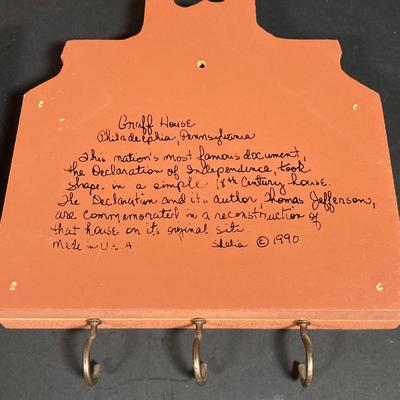 Graff House
Philadelphia, Pennsylvania
This nation's most famous document,
the Declaration of Independence, took
shape in a simple 18th Century house.
The Declaration and its author, Thomas Jefferson,
are commemorated in a reconstruction of
that house on its original site
Made in U.S.A. Shelia © 1990